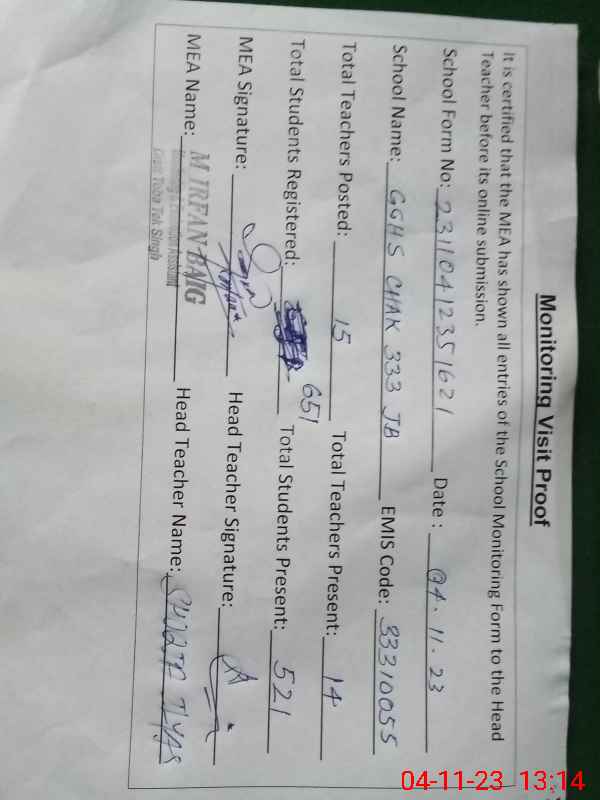 Monitoring Visit Proof
It is certified that the MEA has shown all entries of the School Monitoring Form to the Head
Teacher before its online submission.
School Form No: 23110412351621 Date: 04.11.23
School Name: GGHS CHAK 333 JB EMIS Code: 33310055
Total Teachers Posted: 15 Total Teachers Present: 14
Total Students Registered: 651 Total Students Present: 521
MEA Signature: Head Teacher Signature:
MEA Name: M IRFAN BAIG Head Teacher Name: ILYAS
Toba Tek Singh
04-11-23 13:14